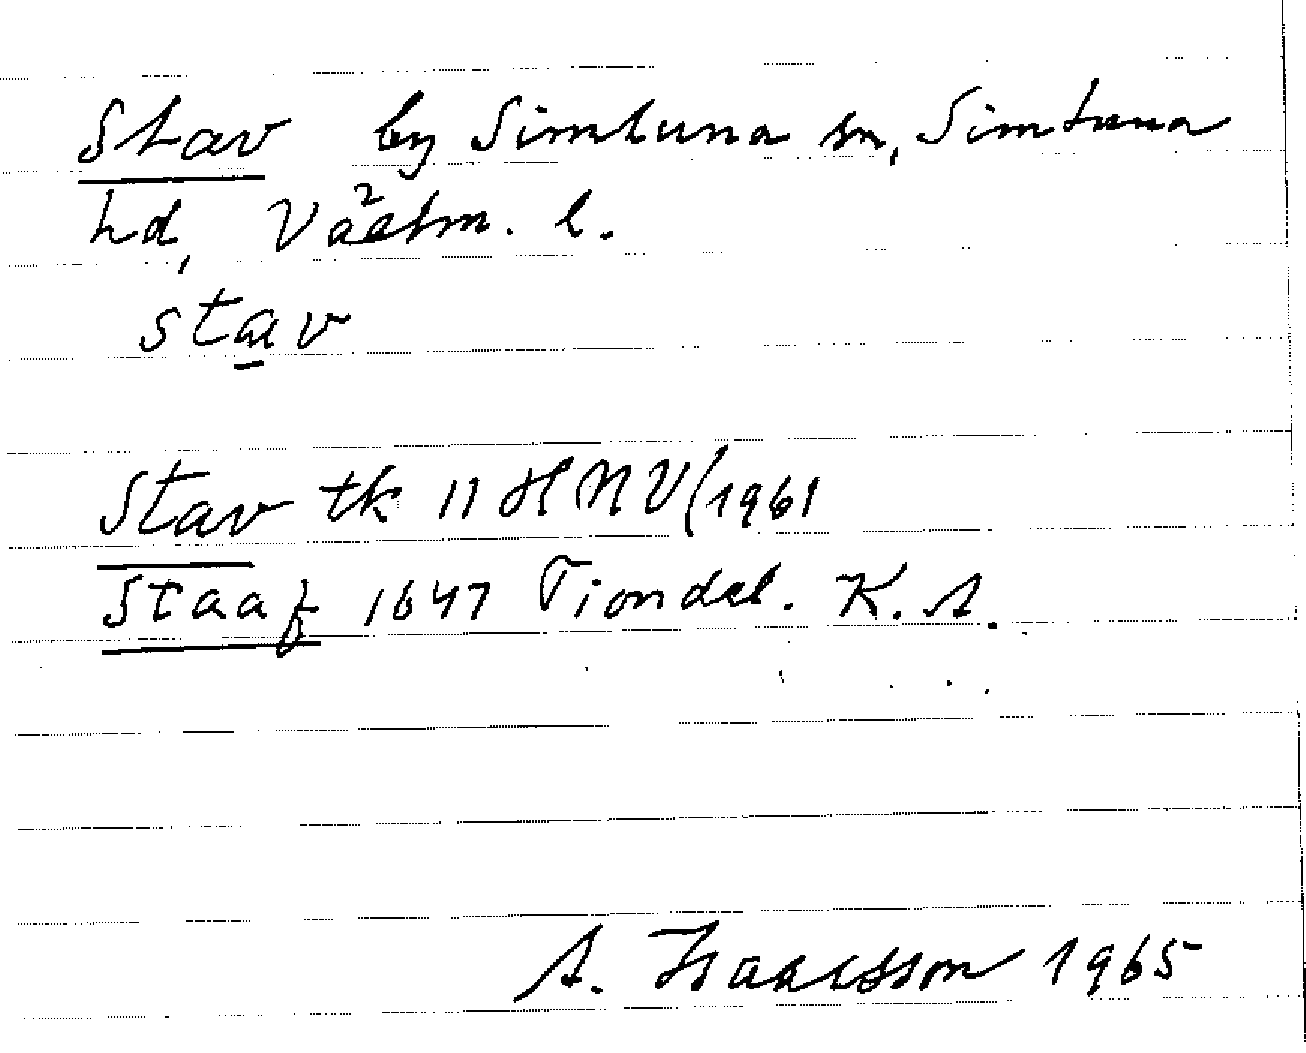 Stav by Simtuna sn, Simtuna
hd, Västm. l.
stav
Stav tk 11 H NV/1961
Staaf 1647 Tiondel. K.A.
A. Isaacsson 1965